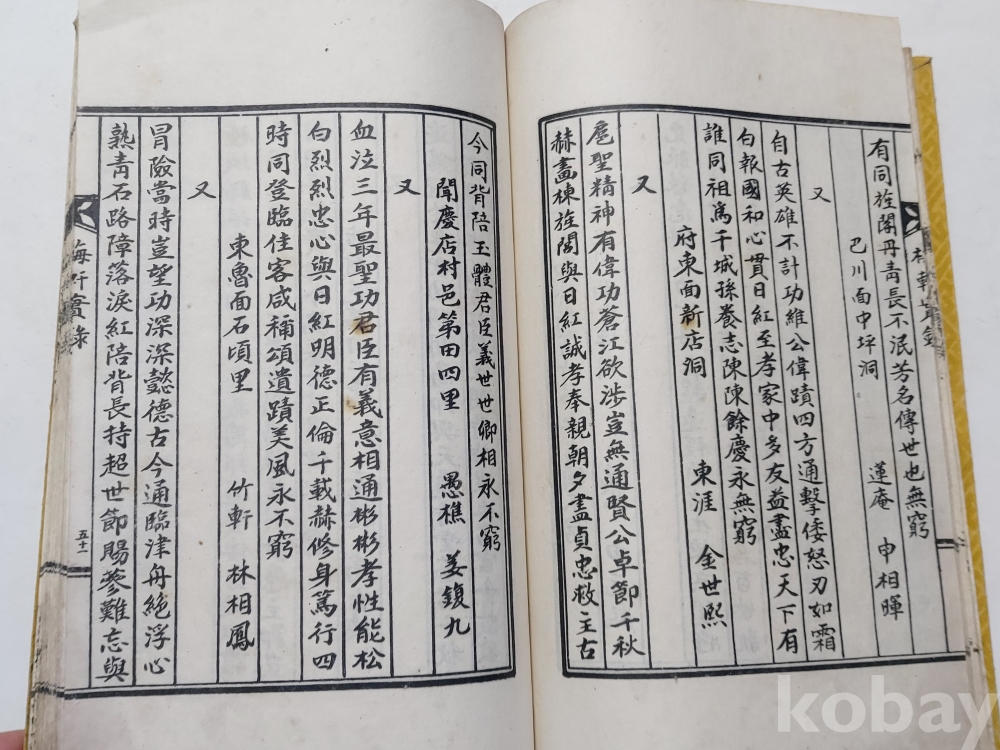 有同旌閣丹靑長不泯芳名傳世也無窮
巴川面中坪洞 蓮庵 申相暉
又
自古英雄不計功維公偉蹟四方通擊倭怒刃如霜
白報國和心貫日紅至孝家中多友益盡忠天下有
誰同祖爲千城孫養志陳陳餘慶永無窮
府東面新店洞 東涯 金世熙
又
扈聖精神有偉功蒼江欲涉豈無通賢公卓節千秋
赫畵棟旌閣與日紅誠孝奉親朝夕盡貞忠救王古
今同背陪玉體君臣義世世卿相永不窮
聞慶店村邑第田四里 愚樵 姜鍑九
又
血泣三年最聖功君臣有義意相通彬彬孝性能松
白烈烈忠心與日紅明德正倫千載赫修身篤行四
時同登臨佳客咸稱頌遺蹟美風永不窮
東魯面石項里 竹軒 林相鳳
又
冒險當時豈望功深深懿德古今通臨津舟絕浮心
熟靑石路障落淚紅陪背長持超世節賜蔘難忘與
實錄
五十一
kobay